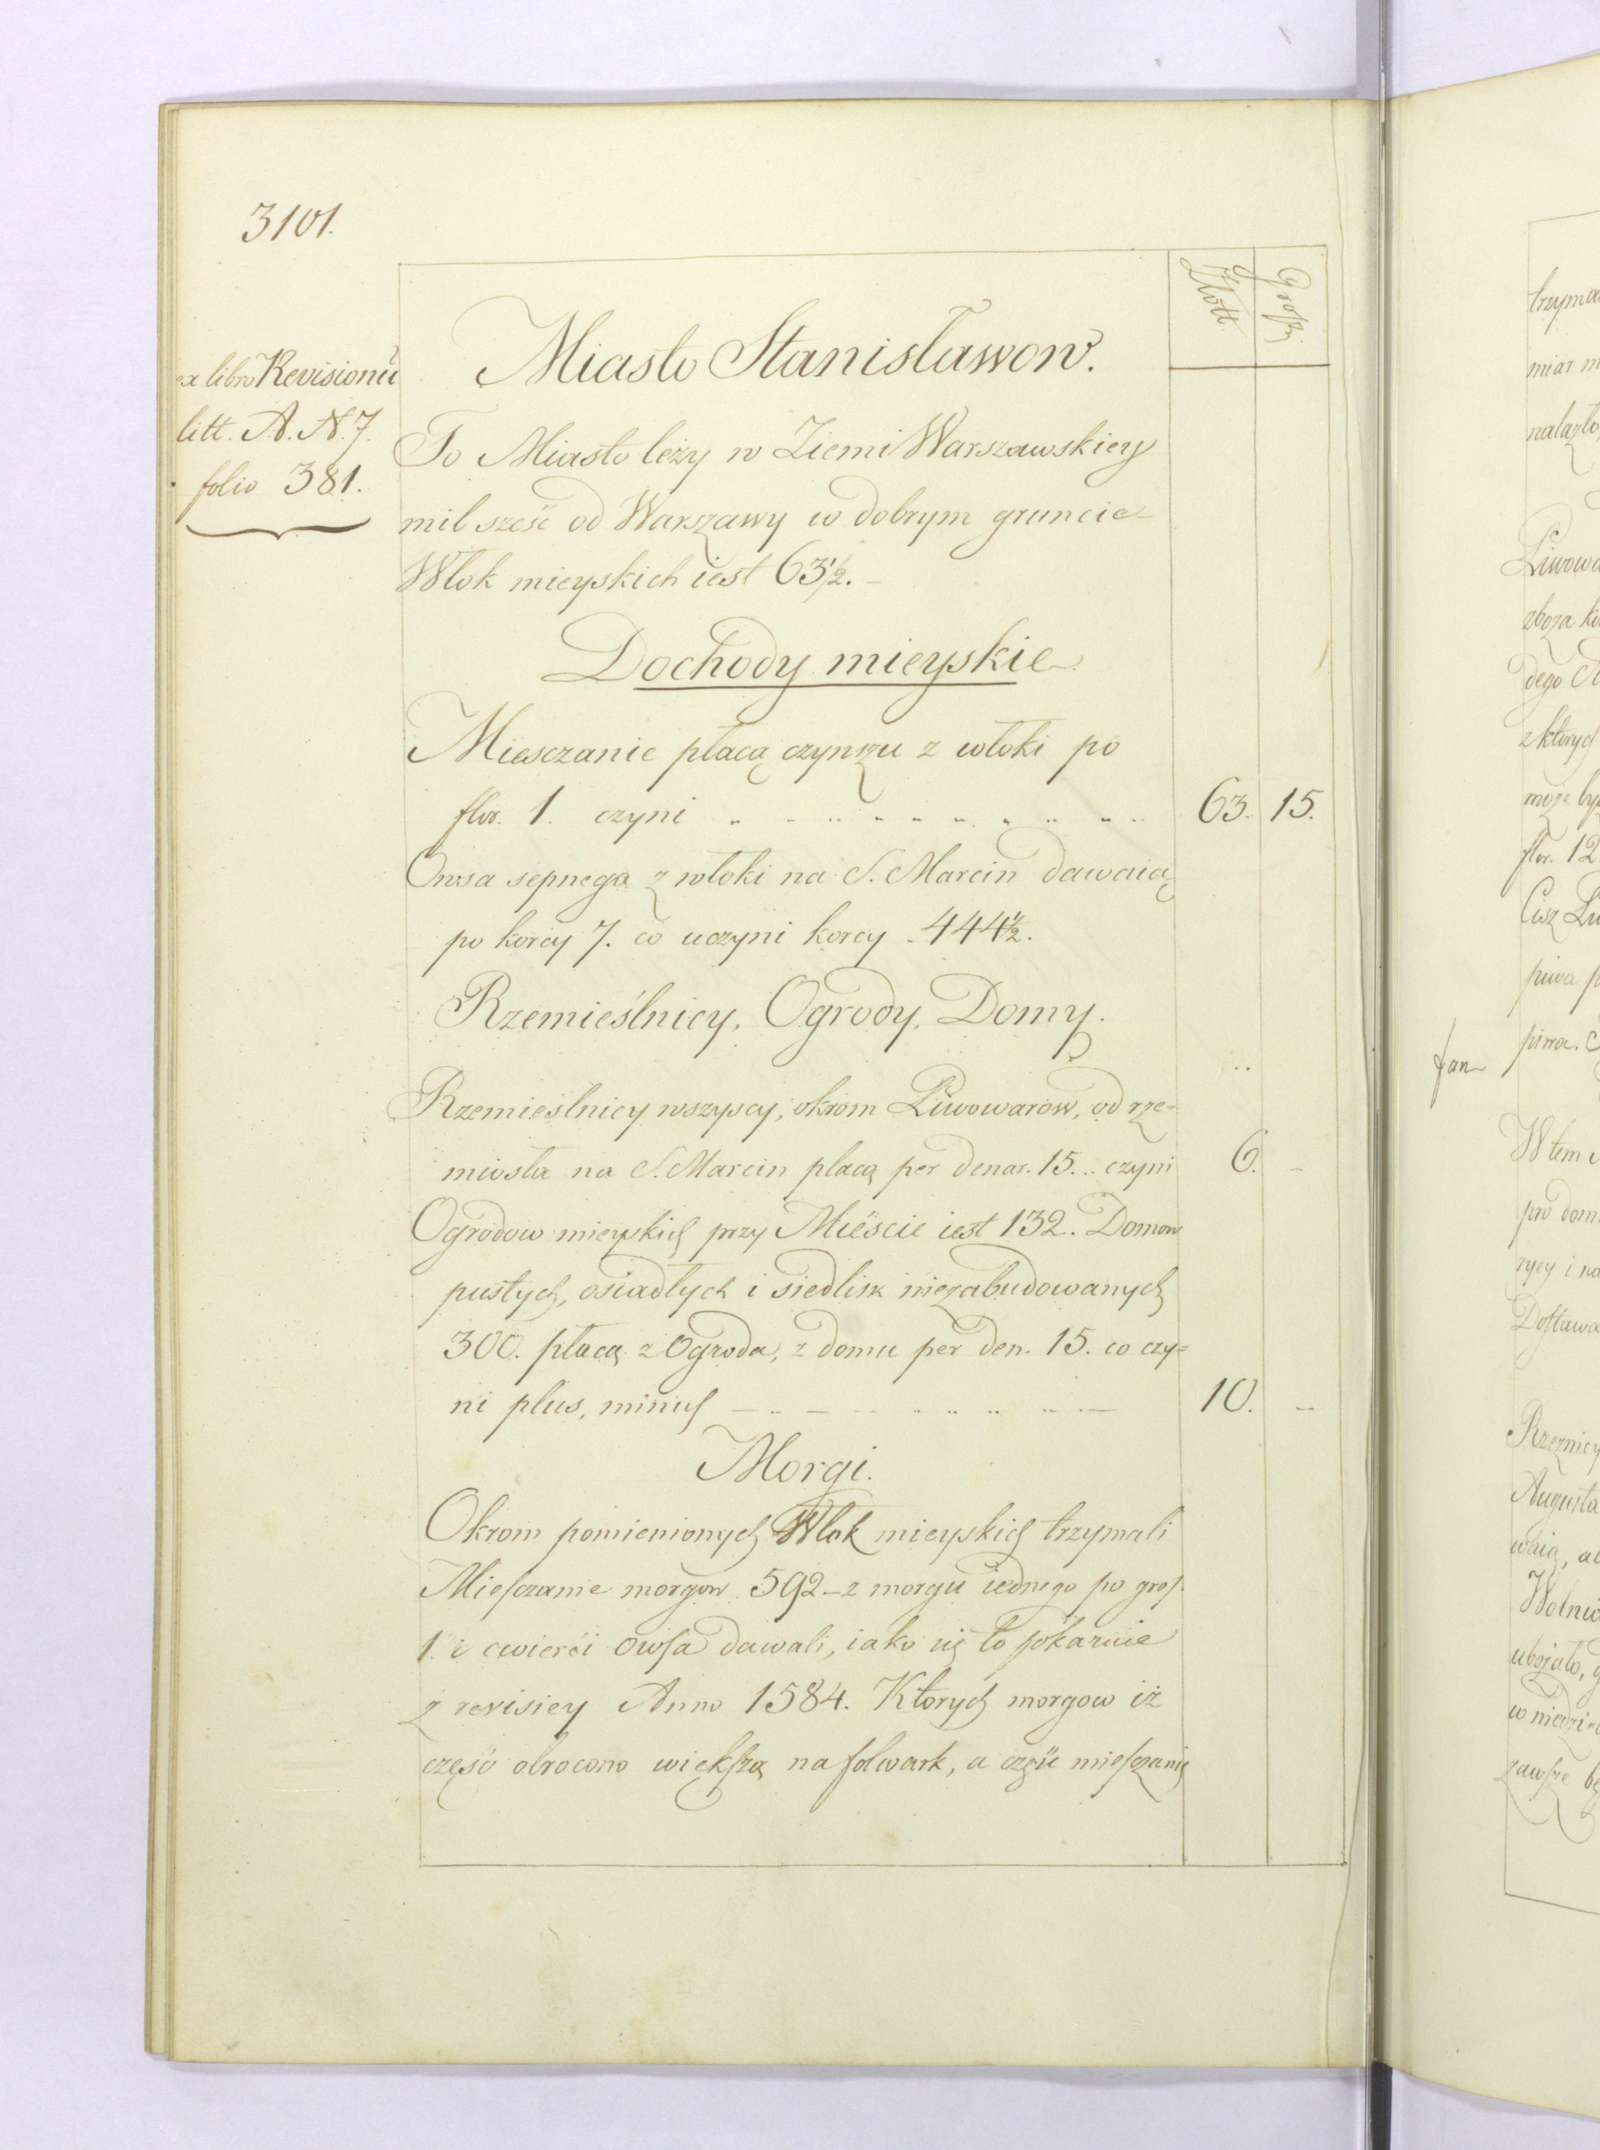 3101.
Złott. Groszy
ex libro Revisionū
litt. A. N. 7.
folio 381.
Miasto Stanisławow.
To Miasto leży w Ziemi Warszawskiey
mil sześć od Warszawy w dobrym gruncie
Włok mieyskich iest 63½.
Dochody mieyskie
Miesczanie płacą czynszu z włoki po
flor. 1. czyni 63. 15.
Owsa sepnego z włoki na S. Marcin dawaią
po korcy 7. co uczyni korcy 444½.
Rzemieślnicy, Ogrody, Domy.
Rzemieślnicy wszyscy, okrom Piwowarow, od rze-
miosła na S. Marcin płacą per denar. 15... czyni 6. –
Ogrodow mieyskich przy Mieście iest 132. Domow
pustych, osiadłych i siedlisk niezabudowanych
300. płacą z Ogroda, z domu per den. 15. co czy=
ni plus, minus 10. --
Morgi.
Okrom pomienionych Włok mieyskich trzymali
Miesczanie morgow 592 – z morgu iednego po gros.
1. i cwierći owsa dawali, iako się to pokazuie
z revisiey Anno 1584. Ktorych morgow iż
część obrocono większą na folwark, a część miesczanie
trzyma
miar
Piwowa
zboża
dego
z ktorych
może
flor. 12
piwa
piwa.
fan
W tem
pro dom
Dostawa
Rzeznicy
Augusta
waią,
Wolnic
zawsze